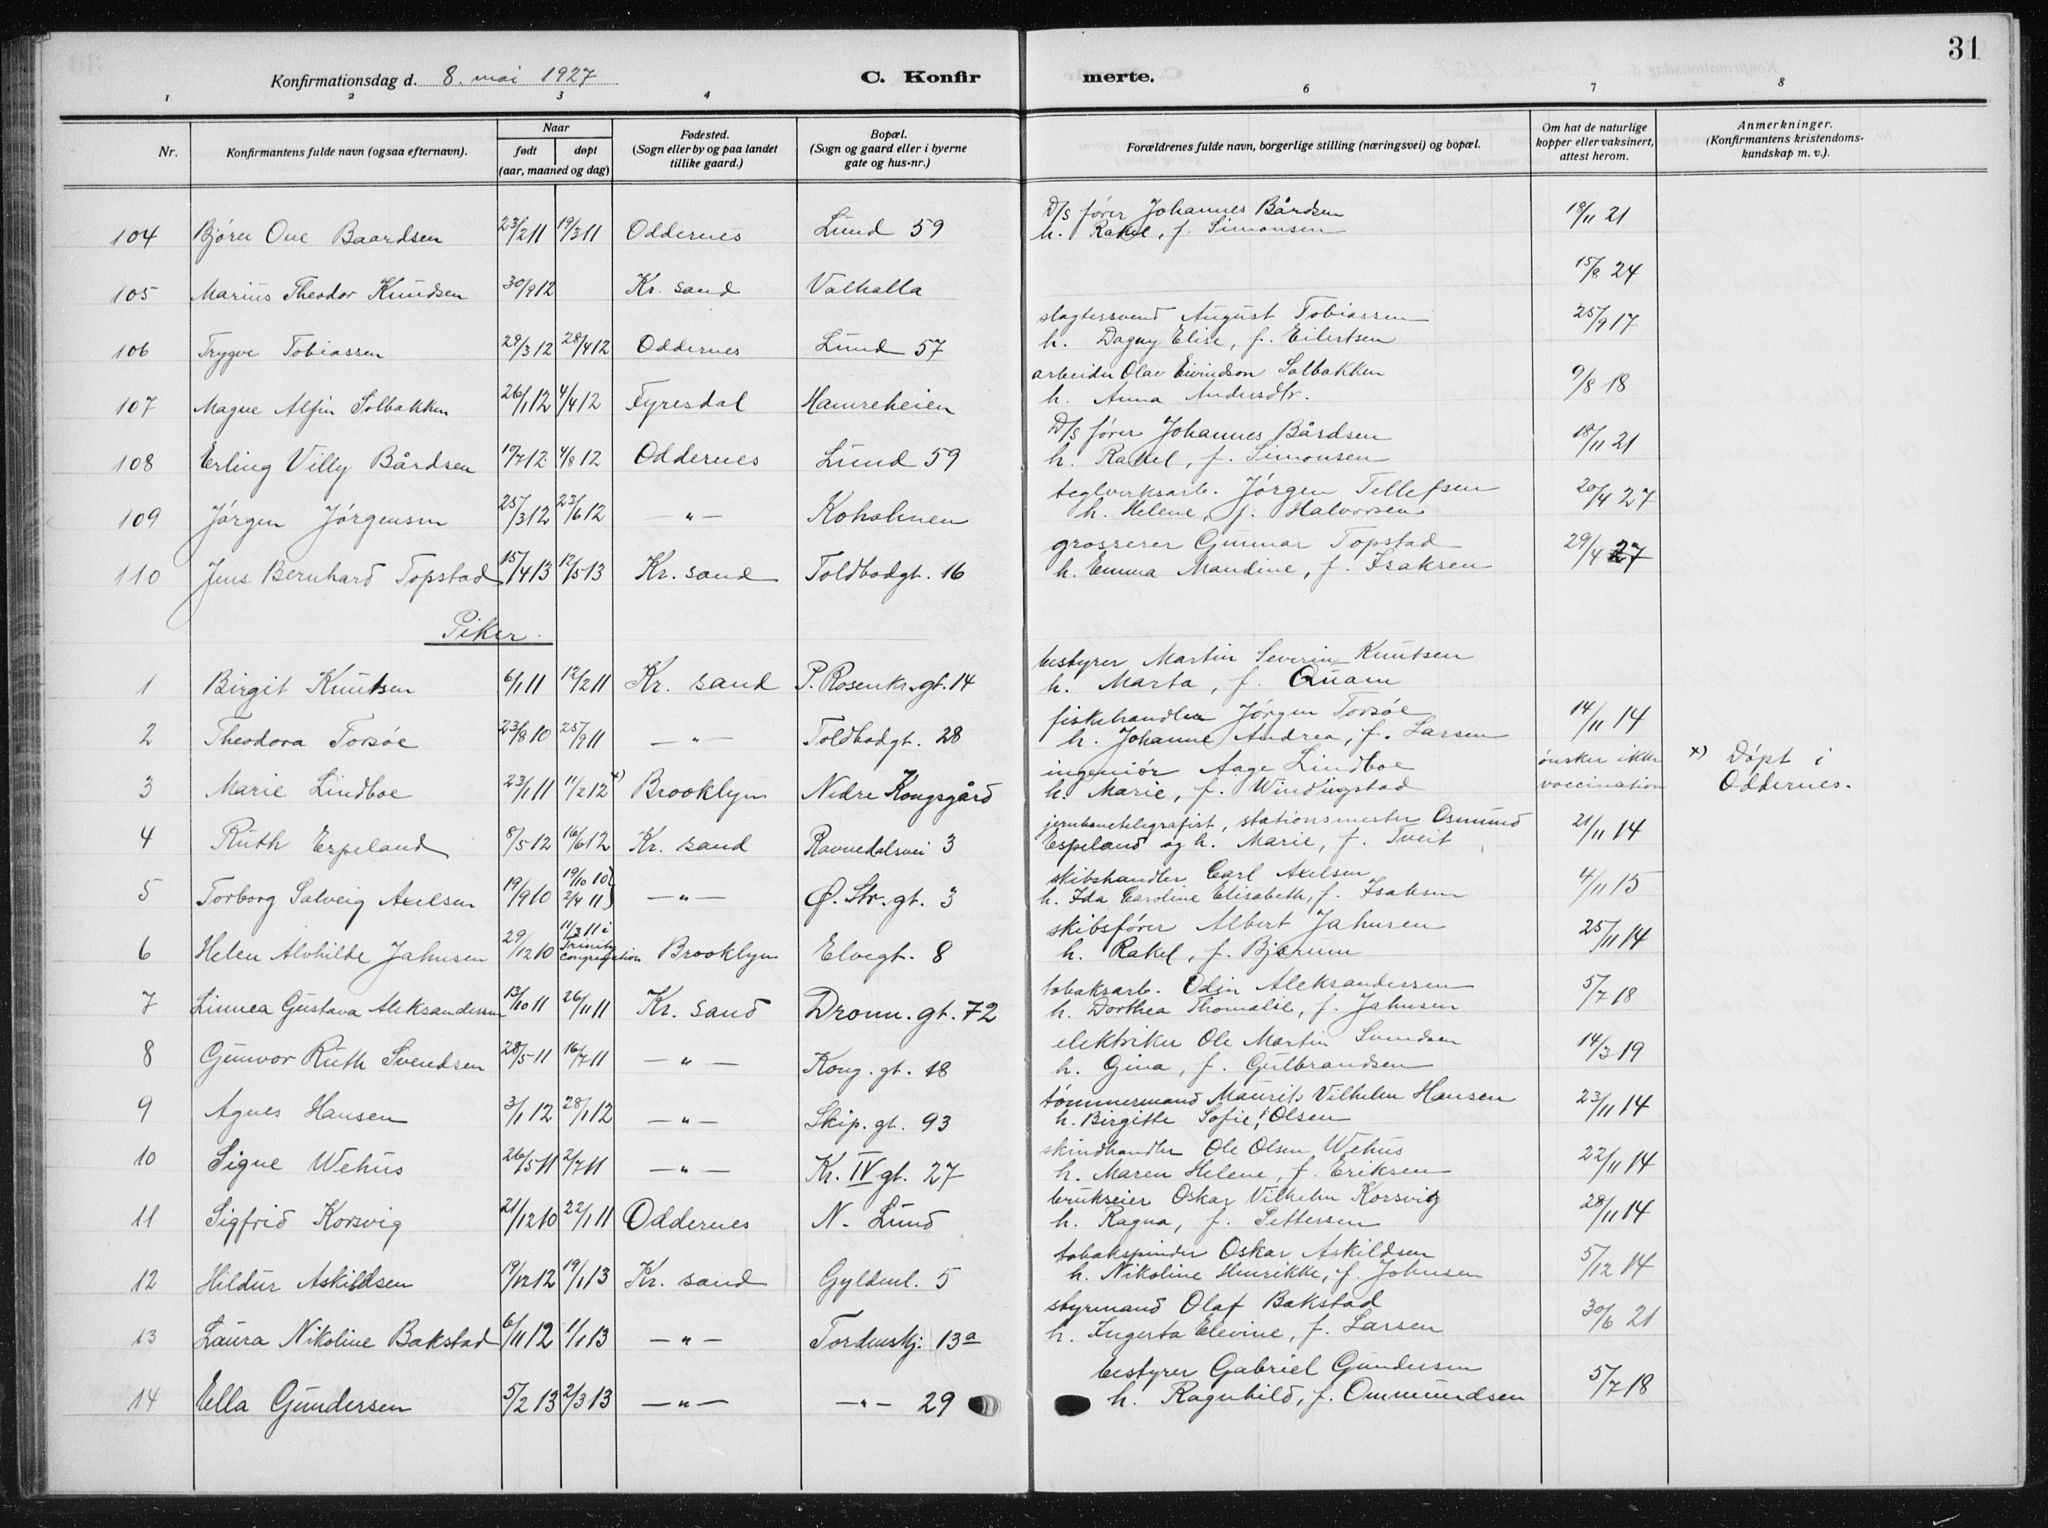 31
Konfirmationsdag d. 8. mai 1927 C. Konfir merte.
1 2 3 4 5 6 7 8
Nr. Konfirmantens fulde navn (ogsaa efternavn). Naar født døpt (aar, maaned og dag) Fødested. (Sogn eller by og paa landet tillike gaard.) Bopæl. (Sogn og gaard eller i byerne gate og hus-nr.) Forældrenes fulde navn, borgerlige stilling (næringsvei) og bopæl. Om hat de naturlige kopper eller vaksinert, attest herom. Anmerkninger. (Konfirmantens kristendoms-kundskap m. v.).
104 Bjørn Ove Baardsen 23/2 11 19/3 11 Oddernes Lund 59 D/s fører Johannes Bårdsen 18/11 21
h. Rakel, f. Simonsen
105 Marius Theodor Knudsen 30/9 12 Kr. sand Valhalla 15/8 24
106 Trygve Tobiassen 29/3 12 28/4 12 Oddernes Lund 57 slagtersvend August Tobiassen 25/9 17
h. Dagny Elise, f. Eilertsen
107 Magne Alfin Solbakken 26/1 12 4/4 12 Fyresdal Hamreheien arbeider Olav Eivindson Solbakken 9/8 18
h. Anna Andersdtr.
108 Erling Villy Bårdsen 17/7 12 4/8 12 Oddernes Lund 59 D/s fører Johannes Bårdsen 18/11 21
h. Rakel, f. Simonsen
109 Jørgen Jørgensen 25/3 12 23/6 12 —"— Koholmen teglverksarb. Jørgen Tellefsen 20/4 27
h. Helene, f. Halvorsen
110 Jens Bernhard Topstad 15/4 13 12/5 13 Kr. sand Toldbodgt. 16 grosserer Gunnar Topstad 29/4 27
h. Emma Mandine, f. Isaksen
Piker.
1 Birgit Knutsen 6/1 11 12/2 11 Kr. sand P. Rosenkr. gt. 14 bestyrer Martin Severin Knutsen
h. Marta, f. Quam
2 Theodora Torsøe 23/8 10 25/9 11 —"— Toldbodgt. 28 fiskehandler Jørgen Torsøe 14/11 14
h. Johanne Andrea, f. Larsen
3 Marie Lindboe 23/1 11 11/2 12 x) Brooklyn Nedre Kongsgård ingeniør Aage Lindboe ønsker ikke x) Døpt i
h. Marie, f. Windingstad vaccination Oddernes.
4 Ruth Espeland 8/5 12 16/6 12 Kr. sand Ravnedalsvei 3 jernbanetelegrafist, stationsmester Osmund 21/11 14
Espeland og h. Marie, f. Tveit
5 Torborg Salveig Axelsen 19/9 10 19/10 10) 2/4 11) —"— Ø. Str. gt. 3 skibshandler Carl Axelsen 4/11 15
h. Ida Caroline Elisabeth, f. Isaksen
6 Helen Alvhilde Jahnsen 29/12 10 11/3 11 i Trinity congregation Brooklyn Elvegt. 8 skibsfører Albert Jahnsen 25/11 14
h. Rakel, f. Bjerum
7 Linnea Gustava Aleksandersen 13/10 11 26/11 11 Kr. sand Dronn. gt. 72 tobaksarb. Odin Aleksandersen 5/7 18
h. Dorthea Thomalie, f. Jahnsen
8 Gunvor Ruth Svendsen 28/5 11 16/7 11 —"— Kong. gt. 18 elektriker Ole Martin Svendsen 14/3 19
h. Gina, f. Gulbrandsen
9 Agnes Hansen 3/1 12 28/1 12 —"— Skip. gt. 93 tømmermand Maurits Vilhelm Hansen 23/11 14
h. Birgitte Sofie, f. Olsen
10 Signe Wehus 26/5 11 2/7 11 —"— Kr. IV gt. 27 skindhandler Ole Olsen Wehus 22/11 14
h. Maren Helene, f. Eriksen
11 Sigfrid Korsvig 21/12 10 22/1 11 Oddernes N. Lund brukseier Oskar Vilhelm Korsvig 28/11 14
h. Ragna, f. Pettersen
12 Hildur Askildsen 19/12 12 19/1 13 Kr. sand Gyldenl. 5 tobakspinder Oskar Askildsen 5/12 14
h. Nikoline Henrikke, f. Johnsen
13 Laura Nikoline Bakstad 6/11 12 1/1 13 —"— Tordenskj. 13a styrmand Olaf Bakstad 30/6 21
h. Ingerta Elevine, f. Larsen
14 Ella Gundersen 5/2 13 2/3 13 —"— —"— 29 bestyrer Gabriel Gundersen 5/7 18
h. Ragnhild, f. Ommundsen